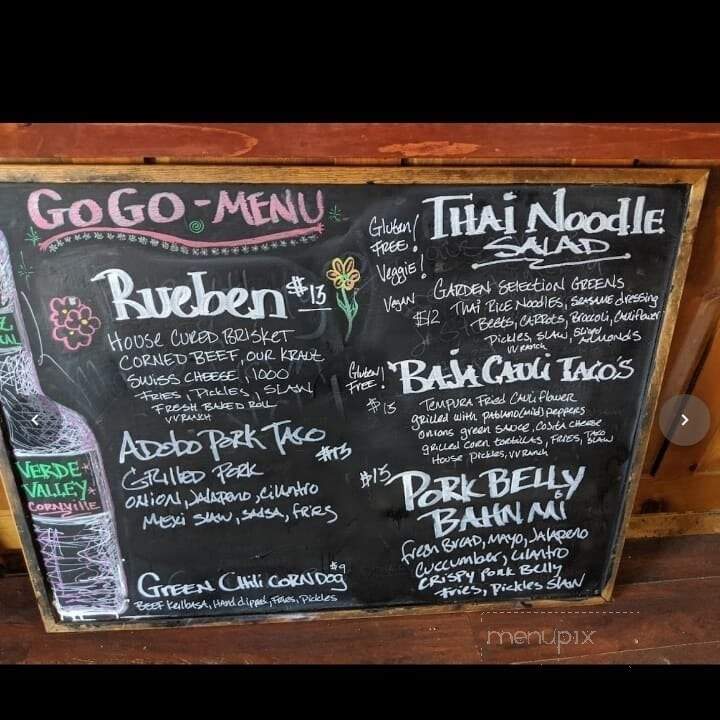 GoGo-MENU
Rueben $13
HOUSE CURED BRISKET
CORNED BEEF, OUR KRAUT
SWISS CHEESE, 1000
FRIES, PICKLES, SLAW
FRESH BAKED ROLL
VV RANCH
Adobo Pork Taco
$13
GRILLED PORK
ONION, JALAPENO, CILANTRO
MEXI SLAW, SALSA, FRIES
$9
GREEN CHILI CORN DOG
BEEF KEILBASA, HAND dipped, FRIES, PICKLES
VERDE
VALLEY
CORNVILLE
Gluten FREE!
Veggie!
Vegan
THAI NOODLE
SALAD
$12
GARDEN SELECTION GREENS
THAI RICE NOODLES, SESAME dressing
BEETS, CARROTS, BROCCOLI, CAULIFLOWER
PICKLES, SLAW, Slivered ALMONDS
VV RANCH
Gluten FREE!
$13
BAJA CAULI TACO'S
TEMPURA FRIED CAULIFLOWER
grilled with PABLANO(mild) peppers
ONIONS green SAUCE, COJITA CHEESE
grilled CORN TORTILLAS, FRIES, TACO SLAW
HOUSE PICKLES, VV RANCH
$13
PORK BELLY
BAHN MI
fresh BREAD, MAYO, JALAPENO
CUCCUMBER, CILANTRO
CRISPY PORK BELLY
FRIES, PICKLES SLAW
menupix